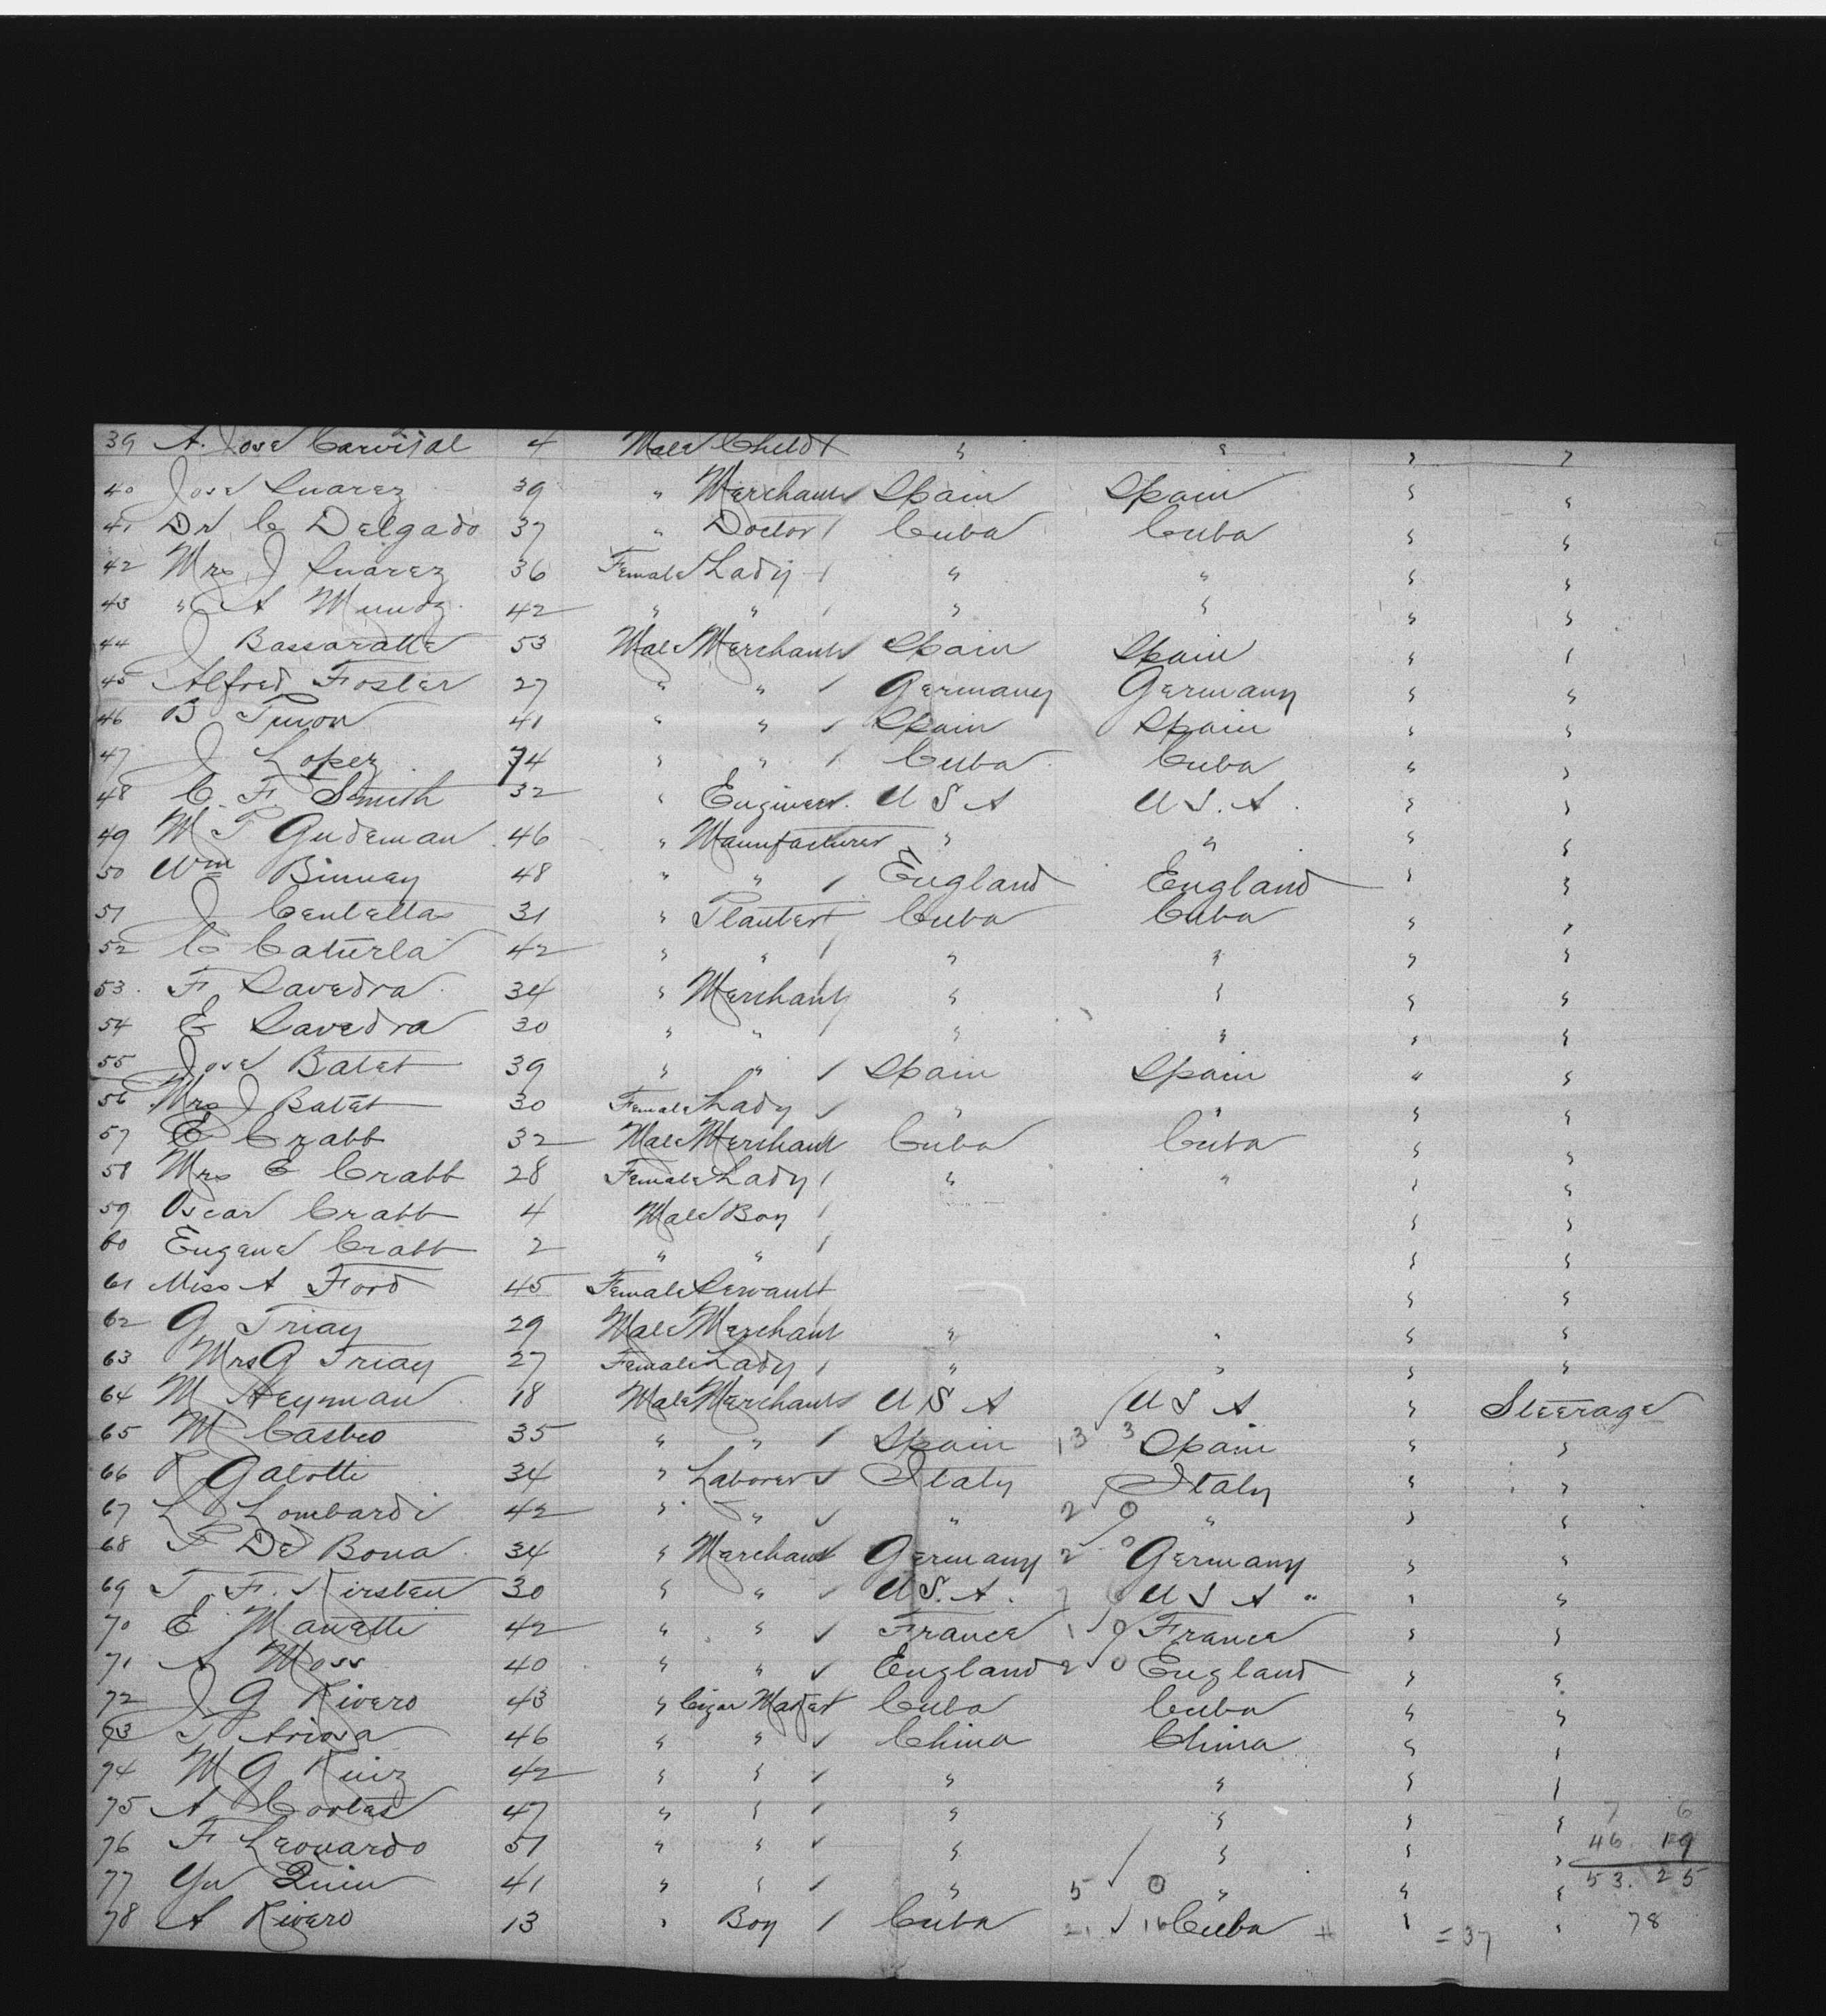 39 A. Jose Carvijal 4 Male Child " " " "
40 Jose Suarez 39 " Merchant Spain Spain " "
41 Dr C Delgado 37 " Doctor Cuba Cuba " "
42 Mrs J Suarez 36 Female Lady " " " "
43 " A Munoz 42 " " " " " "
44 J Bassaratte 53 Male Merchant Spain Spain " "
45 Alfred Foster 27 " " Germany Germany " "
46 B 41 " " Spain Spain " "
47 J Lopez 74 " " Cuba Cuba " "
48 C. F. Smith 32 " Engineer U S A U S. A. " "
49 M T Gudeman 46 " Manufacturer " " " "
50 Wm Binney 48 " " England England " "
51 J Centellas 31 " Planter Cuba Cuba " "
52 C Caturla 42 " " " " " "
53. F Savedra 34 " Merchant " " " "
54 E Savedra 30 " " " " " "
55 Jose Batet 39 " " Spain Spain " "
56 Mrs J Batet 30 Female Lady " " " "
57 E Crabb 32 Male Merchant Cuba Cuba " "
58 Mrs E Crabb 28 Female Lady " " " "
59 Oscar Crabb 4 Male Boy " "
60 Eugene Crabb 2 " " " "
61 Miss A Ford 45 Female Servant " "
62 G Triay 29 Male Merchant " " " "
63 Mrs G Triay 27 Female Lady " " " "
64 M Heynman 18 Male Merchant U S A U S A " Steerage
65 M Castro 35 " " Spain 13 3 Spain " "
66 R Galotti 34 " Laborer Italy Italy " "
67 L Lombardi 42 " " " 2 0 " " "
68 F De Bona 34 " Merchant Germany 2 0 Germany " "
69 T. F. Kirsten 30 " " U S. A. 7 6 U S A " " "
70 E Manetti 42 " " France 1 0 France " "
71 A Moss 40 " " England 2 0 England " "
72 J G Rivero 43 " Cigar Maker Cuba Cuba " "
73 T Ariosa 46 " " China China " "
74 M G Ruiz 42 " " " " " "
75 A Cortes 47 " " " " " " 7 6
76 F Leonardo 51 " " " " " " 46. 19
77 Yu Quin 41 " " " 5 0 " " " 53. 25
78 A Rivero 13 " Boy Cuba 21 16 Cuba " = 37 " 78